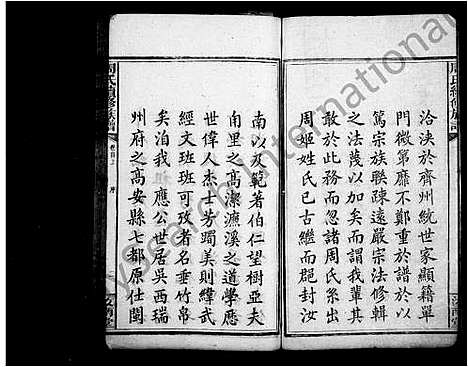 周氏續修族譜
洽浹於齊州統世家顯籍單
門微第靡不鄭重於譜於以
篤宗族聯疎遠嚴宗法修輯
之法蔑以加矣而謂我輩其
敢於此務而忽諸周氏系出
周姬姓氏已古繼而郡封汝
南以及範著伯仁望樹亞夫
甫里之高潔濂溪之道學應
世偉人杰士芳躅美則緯武
經文班班可孜者名垂竹帛
矣洎我應公世居吳西瑞
州府之高安縣七都原仕閩
周氏續修族譜
卷首上
序
汝南堂
International